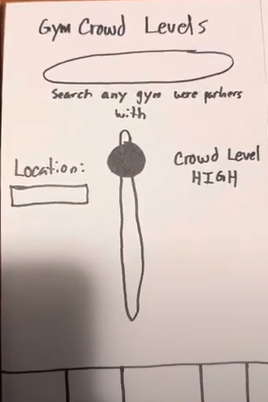 Gym Crowd Levels
Search any gym were partners
with
Location:
Crowd Level
HIGH